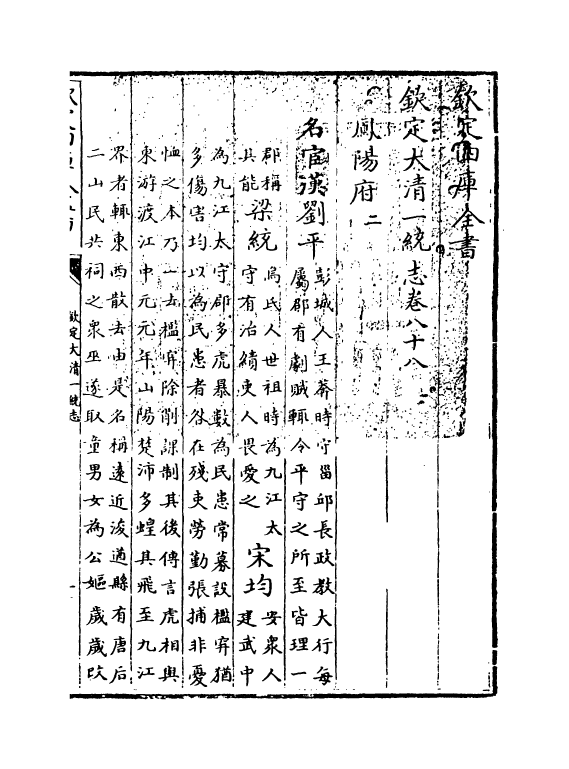 欽定四庫全書
欽定大清一統志卷八十八
鳳陽府二
名宦漢劉平
彭城人王莽時守甾邱長政教大行每
屬郡有劇賊輒令平守之所至皆理一
郡稱
其能
梁統
烏氏人世祖時為九江太
守有治績吏人畏愛之
宋均
安衆人
建武中
為九江太守郡多虎暴數為民患常募設檻穽猶
多傷害均以為民患者咎在殘吏勞勤張捕非憂
恤之本乃一去檻穽除削課制其後傳言虎相與
東游渡江中元元年山陽楚沛多蝗其飛至九江
界者輒東西散去由是名稱遠近浚遒縣有唐后
二山民共祠之衆巫遂取童男女為公嫗歲歲改
欽定大清一統志
一